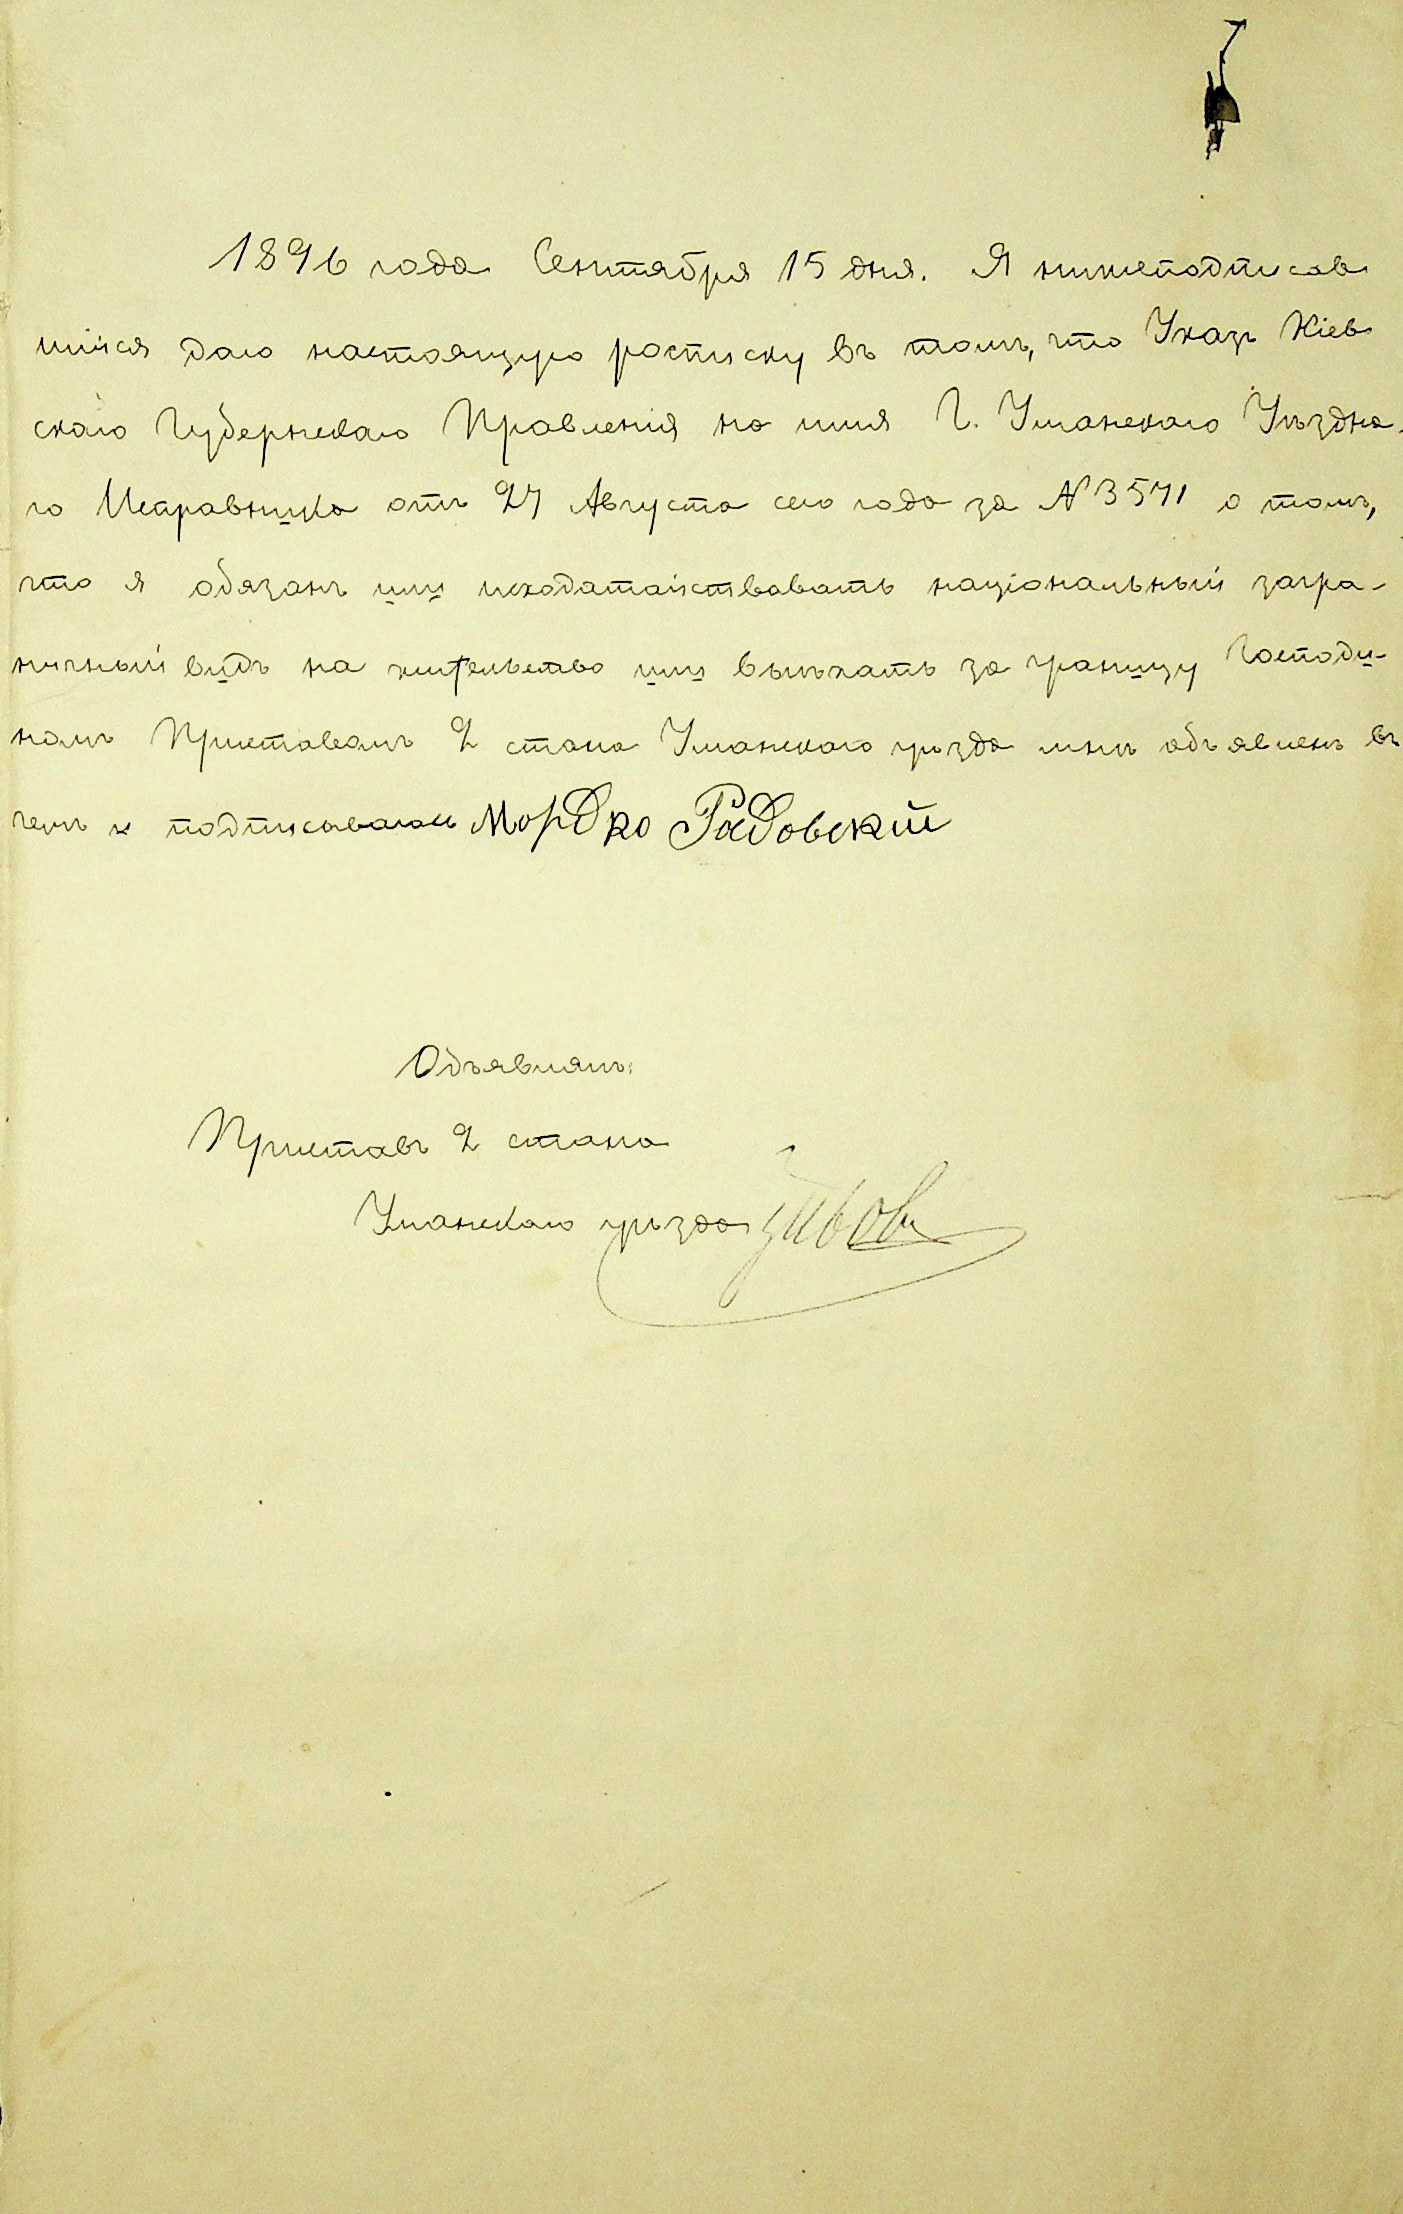 1896 года Сентября 15 дня. Я нижеподписав
шійся даю настоящую росписку въ томъ, что Указъ Кіев
скаго Губернскаго Правленія на имя Г. Уманскаго Уѣздна-
го Исправника отъ 27 Августа сего года за № 3571 о томъ,
что я обязанъ или исходатайствовать національный загра-
ничный видъ на жительство или выѣхать за границу Господи-
номъ Приставомъ 2 стана Уманскаго уѣзда мнѣ объявленъ въ
чемъ и подписываюсь Мордко Радовскій
Объявлялъ:
Приставъ 2 стана
Уманскаго уѣзда